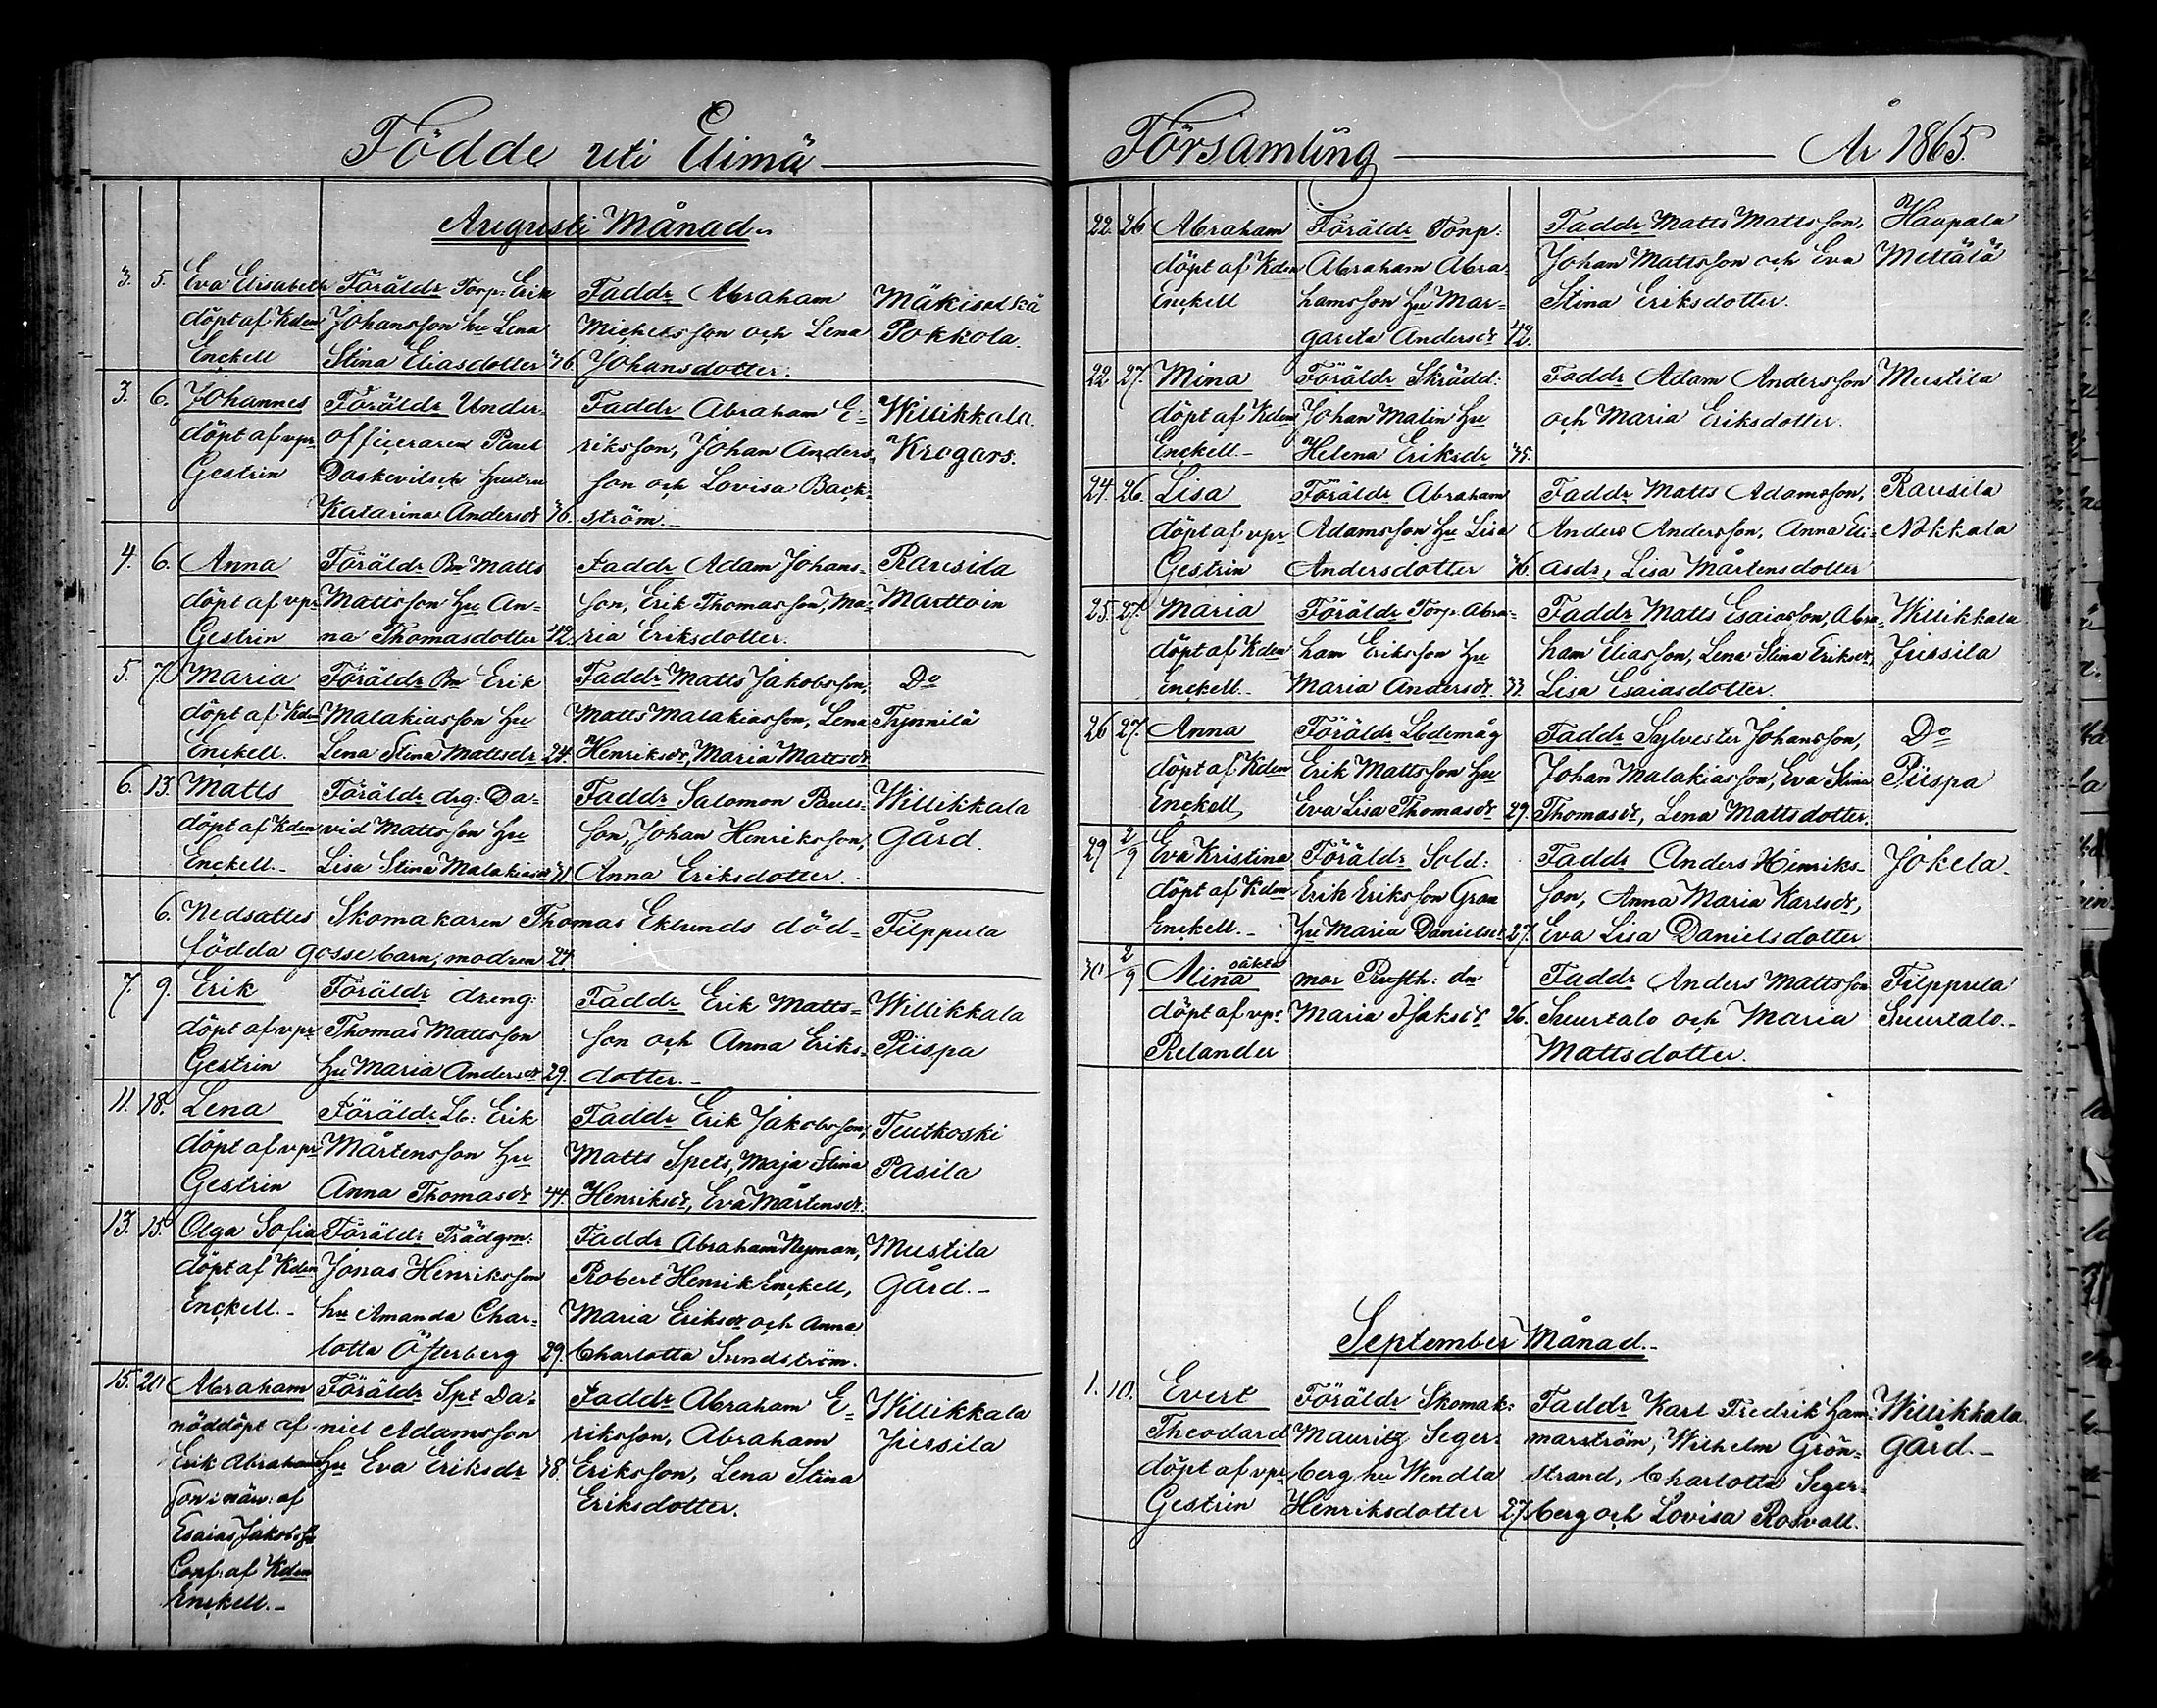 Födde uti Elimä
Augusti Månad.
3. 5. Eva Elisabeth Föräldr Torp: Erik Faddr Abraham Mäkiselkä
döpt af Kden Johansson hu Lena Michelsson och Lena Pokkola.
Enckell Stina Eliasdotter 36. Johansdotter.
3. 6. Johannes Föräldr Under- Faddr Abraham E- Willikkala.
döpt af vpr officeraren Pavel riksson, Johan Anders- Krogars.
Gestrin Daskevitsch hustru son och Lovisa Back-
Katarina Andersdr 36. ström.
4. 6. Anna Föräldr Bn Matts Faddr Adam Johans- Rausila
döpt af vpr Mattsson Hu An- son, Erik Thomasson, Ma- Marttoin
Gestrin na Thomasdotter 42. ria Eriksdotter.
5. 7. Maria Föräldr Bn Erik Faddr Matts Jakobsson, Do
döpt af Kden Malakiasson Hu Matts Malakiasson, Lena Tynnilä
Enckell. Lena Stina Mattsdr 24. Henriksdr, Maria Mattsdr
6. 13. Matts Föräldr drg: Da- Faddr Salomon Pauls- Willikkala
döpt af Kden vid Mattsson Hu son, Johan Henriksson, Gård.
Enckell. Lisa Stina Malakiasdr 31 Anna Eriksdotter.
6. Nedsattes Skomakaren Thomas Eklunds död- Filppula
födda gossebarn, modren 24.
7. 9. Erik Föräldr dreng: Faddr Erik Matts- Willikkala
döpt af vpr Thomas Mattsson son och Anna Eriks- Piispa
Gestrin Hu Maria Andersdr 29. dotter.
11. 18. Lena Föräldr Lb: Erik Faddr Erik Jakobsson, Teutkoski
döpt af vpr Mårtensson Hu Matts Spets, Maja Stina Pasila
Gestrin Anna Thomasdr 44. Henriksdr, Eva Mårtensdr.
13. 15. Olga Sofia Föräldr Trädgm: Faddr Abraham Nyman, Mustila
döpt af Kden Jonas Henriksson Robert Henrik Enckell, Gård.
Enckell. hu Amanda Char- Maria Eriksdr och Anna
lotta Österberg 29. Charlotta Sundström.
15. 20 Abraham Föräldr Spt Da- Faddr Abraham E- Willikkala
nöddöpt af niel Adamsson riksson, Abraham Jussila
Erik Abraham Hu Eva Eriksdr 38. Eriksson, Lena Stina
son i närv: af Eriksdotter.
Esaias Jakobss:
Conf: af Kden
Enckell.
Församling År 1865.
22. 26 Abraham Föräldr Torp: Faddr Matts Mattsson, Haapala
döpt af Kden Abraham Abra- Johan Mattsson och Eva Mettälä
Enckell hamsson Hu Mar- Stina Eriksdotter.
gareta Andersdr 42.
22 27. Mina Föräldr Skrädd: Faddr Adam Andersson Mustila
döpt af Kden Johan Malin Hu och Maria Eriksdotter.
Enckell Helena Eriksdr 35.
24. 26. Lisa Föräldr Abraham Faddr Matts Adamsson, Rausila
döpt af vpr Adamsson Hu Lisa Anders Andersson, Anna Eli- Nokkala
Gestrin Andersdotter 36. asdr, Lisa Mårtensdotter
25. 27. Maria Föräldr Torp. Abra- Faddr Matts Esaiasson, Abra- Willikkala
döpt af Kden ham Eriksson Hu ham Eliasson, Lena Stina Eriksdr, Jussila
Enckell. Maria Andersdr 33. Lisa Esaiasdotter.
26 27. Anna Föräldr Lbdemåg Faddr Sylvester Johansson, Do
döpt af Kden Erik Mattsson Hu Johan Malakiasson, Eva Stina Piispa
Enckell Eva Lisa Thomasdr 29. Thomasdr, Lena Mattsdotter.
29 2/9 Eva Kristina Föräldr Sold: Faddr Anders Henriks- Jokela.
döpt af Kden Erik Eriksson Gran son, Anna Maria Karlsdr,
Enckell. Hu Maria Danielsdr 27. Eva Lisa Danielsdotter
30 2/9 Mina oäkta mor Rusth: dr Faddr Anders Mattsson Filppula
döpt af vpr Maria Isaksdr 26. Suurtalo och Maria Suurtalo.
Relander Mattsdotter.
September Månad.
1. 10. Evert Föräldr Skomak: Faddr Karl Fredrik Ham- Willikkala
Theodard Mauritz Seger- marström, Wilhelm Grön- gård.
döpt af vpr berg hu Wendla strand, Charlotta Seger-
Gestrin Henriksdotter 27. berg och Lovisa Rosvall.